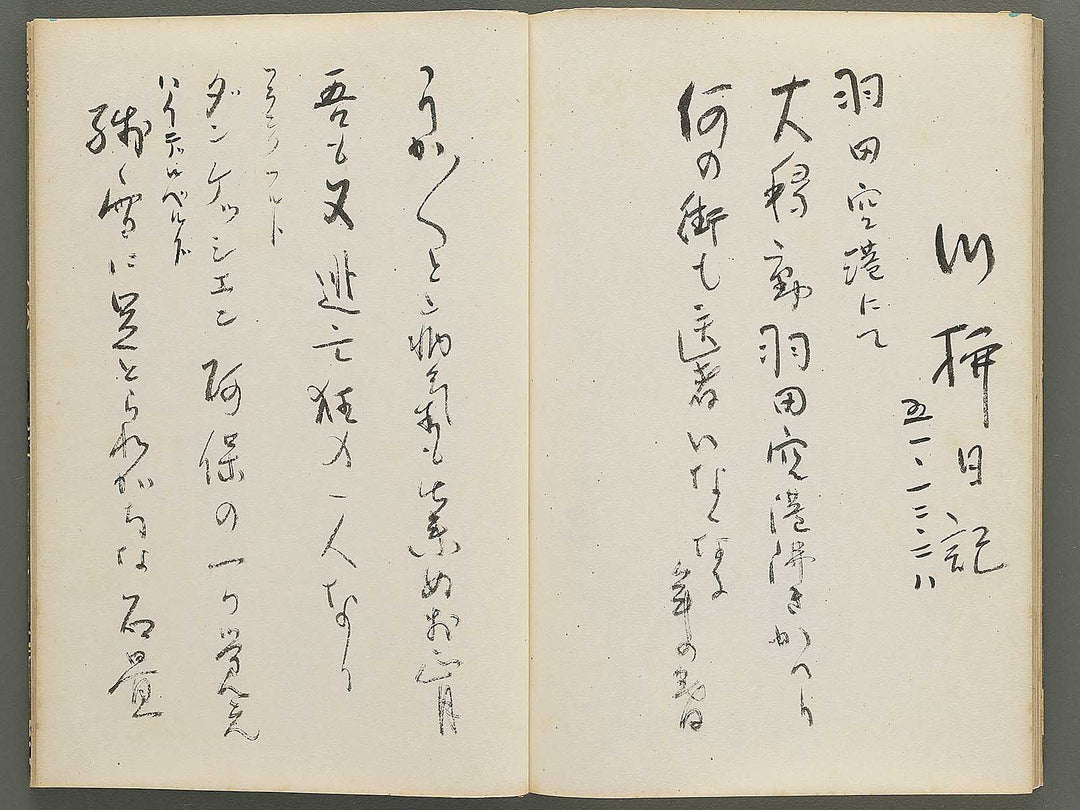 川柳日記
五一・一二・二八
羽田空港にて
大移動羽田空港沸きかへり
何の街も医者いなくなる年の
うか〱と病気も出来ぬお正月
吾も又逃亡狂の一人なり
フランクフルト
ダンケッシェン阿保の一つ覚え
ハイデルベルグ
雪に足とられがちな石畳